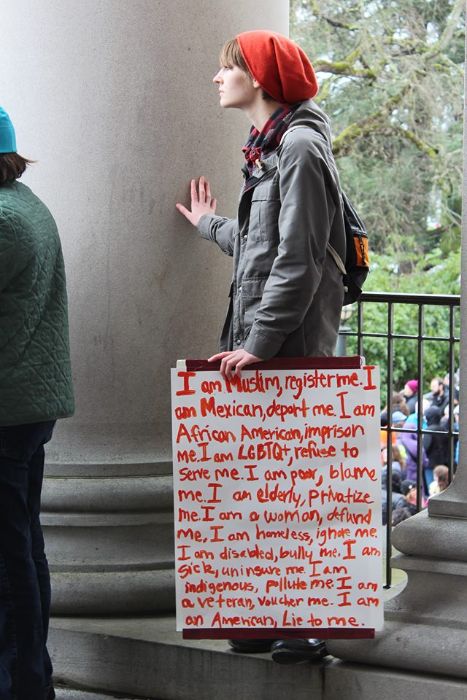 I am Muslim, register me. I
am Mexican, deport me. I am
African American, imprison
me. I am LGBTQ+, refuse to
serve me. I am poor, blame
me. I am elderly, privatize
me. I am a woman, defund
me, I am homeless, ignore me.
I am disabled, bully me. I am
sick, uninsure me. I am
indigenous, pollute me. I am
a veteran, voucher me. I am
an American, Lie to me.